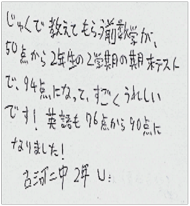 じゅくで教えてもらう前数学が、
50点から2年生の2学期の期末テスト
で、94点になって、すごくうれしい
です！英語も76点から90点に
なりました！
古河二中2年 U.